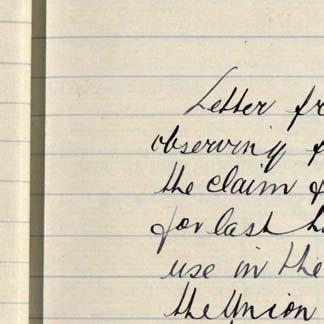 Letter fr
observing f
the claim of
for last h
use in the
the Union